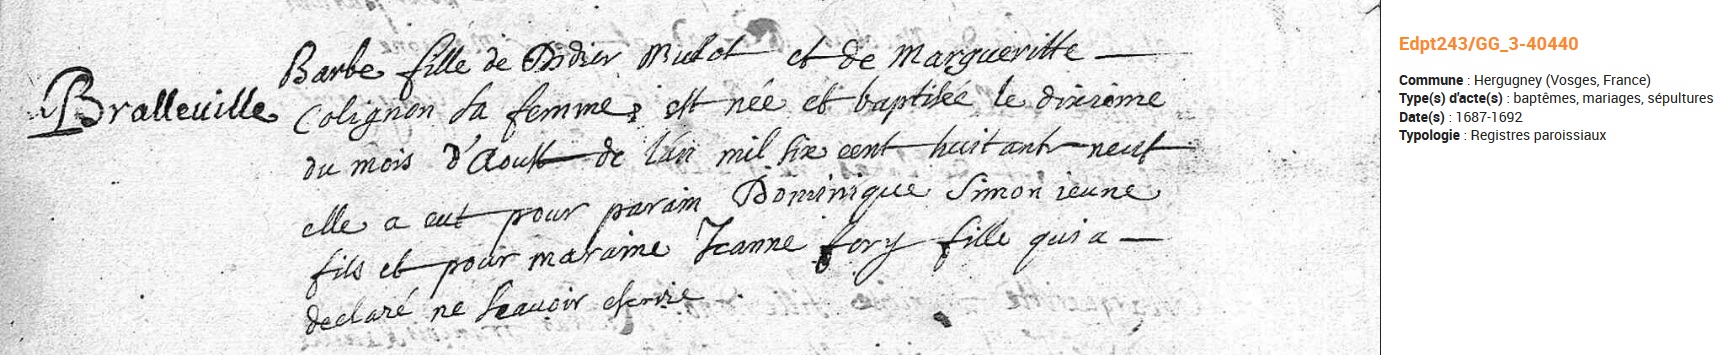 Bralleuille
Barbe fille de Didier Mulot et de Margueritte
Colignon sa femme, est née et baptisée le dixieme
du mois d'Aoust de l'an mil six cent huitant neuf
elle a eut pour parain Dominique Simon ieune
fils et pour maraine Jeanne fory fille qui a
declaré ne scauoir escrire
Edpt243/GG_3-40440
Commune : Hergugney (Vosges, France)
Type(s) d'acte(s) : baptêmes, mariages, sépultures
Date(s) : 1687-1692
Typologie : Registres paroissiaux